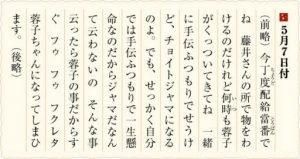 5月7日付
(前略)今丁度配給当番で
ちょうど
ね 藤井さんの所で物をわ
けるのだけれど何時も蓉子
いつ
がくっついてきてね 一緒
に手伝ふつもりでせうけ
ど、チョイトジャマになる
のよ。でも、せっかく自分
では手伝ふつもりで一生懸
命なのだからジャマだなん
て云わないの そんな事
云ったら蓉子の事だからす
ぐ プゥ プゥ フクレタ
蓉子ちゃんになってしまひ
ます。(後略)